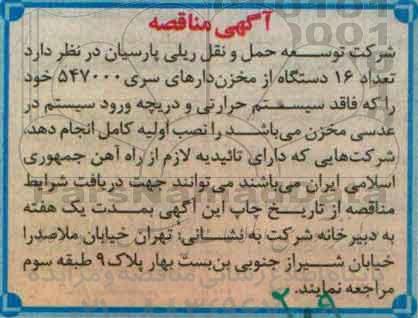 آگهی مناقصه
شرکت توسعه حمل و نقل ریلی پارسیان در نظر دارد
تعداد ۱۶ دستگاه از مخزن‌دارهای سری ۵۴۷۰۰۰ خود
را که فاقد سیستم حرارتی و دریچه ورود سیستم در
عدسی مخزن می‌باشد را نصب اولیه کامل انجام دهد،
شرکت‌هایی که دارای تائیدیه لازم از راه آهن جمهوری
اسلامی ایران می‌باشند می‌توانند جهت دریافت شرایط
مناقصه از تاریخ چاپ این آگهی بمدت یک هفته
به دبیرخانه شرکت به نشانی: تهران خیابان ملاصدرا
خیابان شیراز جنوبی بن‌بست بهار پلاک ۹ طبقه سوم
مراجعه نمایند.